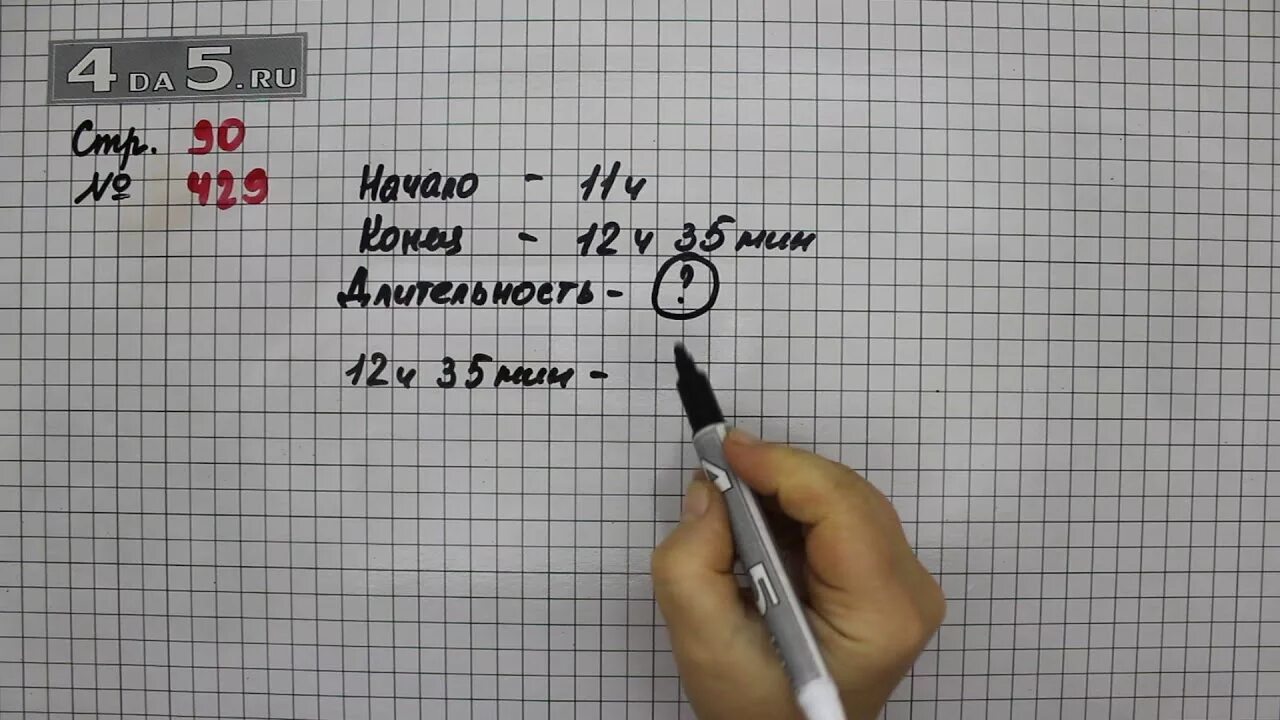 4DA5.RU
Стр. 90
№ 429
Начало - 11 ч
Конец - 12 ч 35 мин
Длительность - ?
12 ч 35 мин -